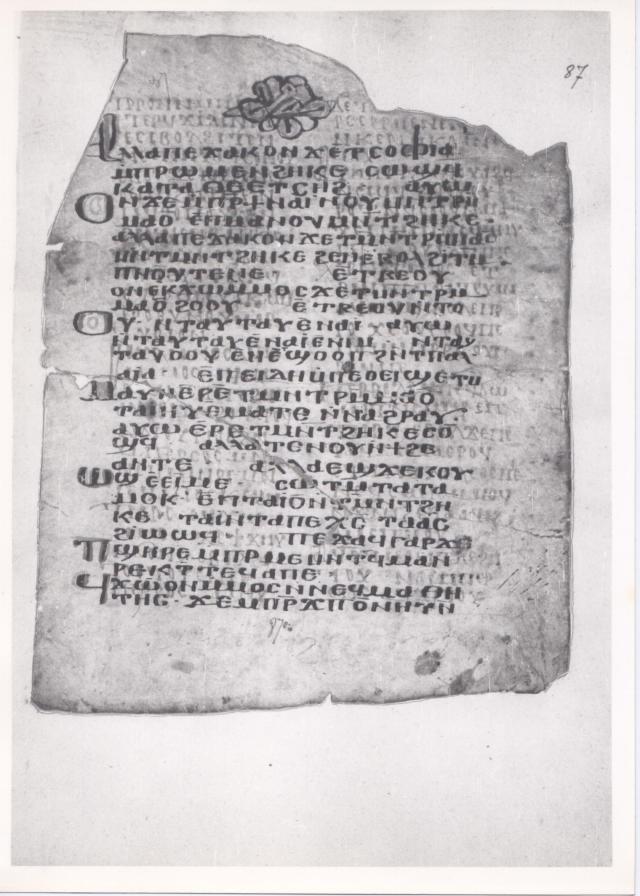 87
ⲁⲗⲗⲁⲡⲉϫⲁⲕⲟⲛϫⲉⲧⲥⲟⲫⲓⲁ
ⲙⲡⲣⲱⲙⲉⲛϩⲏⲕⲉ ⲥⲱϣϥ
ⲕⲁⲧⲁⲑⲉⲉⲧⲥⲏϩ ⲁⲩⲱ
ⲟⲛϫⲉⲙⲡⲣϯⲛⲁⲓⲛⲟⲩⲙⲛⲧⲣⲙ
ⲙⲁⲟ ⲉⲡⲙⲁⲛⲟⲩⲙⲛⲧϩⲏⲕⲉ·
ⲁⲗⲗⲁⲡⲉϫⲁⲕⲟⲛϫⲉⲧⲙⲛⲧⲣⲙⲙⲁⲟ
ⲙⲛⲧⲙⲛⲧϩⲏⲕⲉϩⲉⲛⲉⲃⲟⲗϩⲓⲧⲙ
ⲡⲛⲟⲩⲧⲉⲛⲉ ⲉⲧⲃⲉⲟⲩ
ⲟⲛⲉⲕϫⲱⲙⲙⲟⲥϫⲉⲧⲙⲛⲧⲣⲙ
ⲙⲁⲟ ϩⲟⲟⲩ ⲉⲧⲃⲉⲟⲩⲛⲧⲟ
ⲟⲩ ⲛⲧⲁⲩⲧⲁⲩⲉⲛⲁⲓ ⲁⲩⲱ
ⲛⲧⲁⲩⲧⲁⲩⲉⲛⲁⲓⲉⲛⲓⲙ ⲛⲧⲁⲩ
ⲧⲁⲩⲟⲟⲩ ⲉⲛⲉϣⲟⲟⲡϩⲛⲧⲡⲁⲗ
ⲁⲓⲁ ⲉⲡⲉⲓⲇⲏⲙⲡⲉⲟⲉⲓϣⲉⲧⲙ
ⲙⲁⲩⲛⲉⲣⲉⲧⲙⲛⲧⲣⲙⲙⲁⲟ
ⲧⲁⲓⲏⲩⲉⲙⲁⲧⲉ ⲛⲛⲁϩⲣⲁⲩ
ⲁⲩⲱ ⲉⲣⲉⲧⲙⲛⲧϩⲏⲕⲉⲥⲟ
ϣϥ ⲁⲗⲗⲁⲧⲉⲛⲟⲩⲛϯϩⲉ
ⲁⲛⲧⲉ ⲁⲗⲗⲁⲉϣϫⲉⲕⲟⲩ
ⲱϣⲉⲉⲓⲙⲉ ⲥⲱⲧⲙⲧⲁⲧⲁ
ⲙⲟⲕ ⲉⲡⲧⲁⲓⲟⲛⲧⲙⲛⲧϩⲏ
ⲕⲉ ⲧⲁⲓⲛⲧⲁⲡⲉⲭⲥ ⲧⲁⲁⲥ
ϩⲓⲱⲱϥ ⲡⲉϫⲁϥⲅⲁⲣϫⲉ
ⲡϣⲏⲣⲉⲙⲡⲣⲱⲙⲉⲙⲛⲧϥⲙⲁⲛ
ⲣⲉⲕⲧⲧⲉϥⲁⲡⲉ
ϥϫⲱⲟⲛⲙⲙⲟⲥⲛⲛⲉϥⲙⲁⲑⲏ
ⲧⲏⲥ· ϫⲉⲙⲡⲣϫⲡⲟⲛⲏⲧⲛ